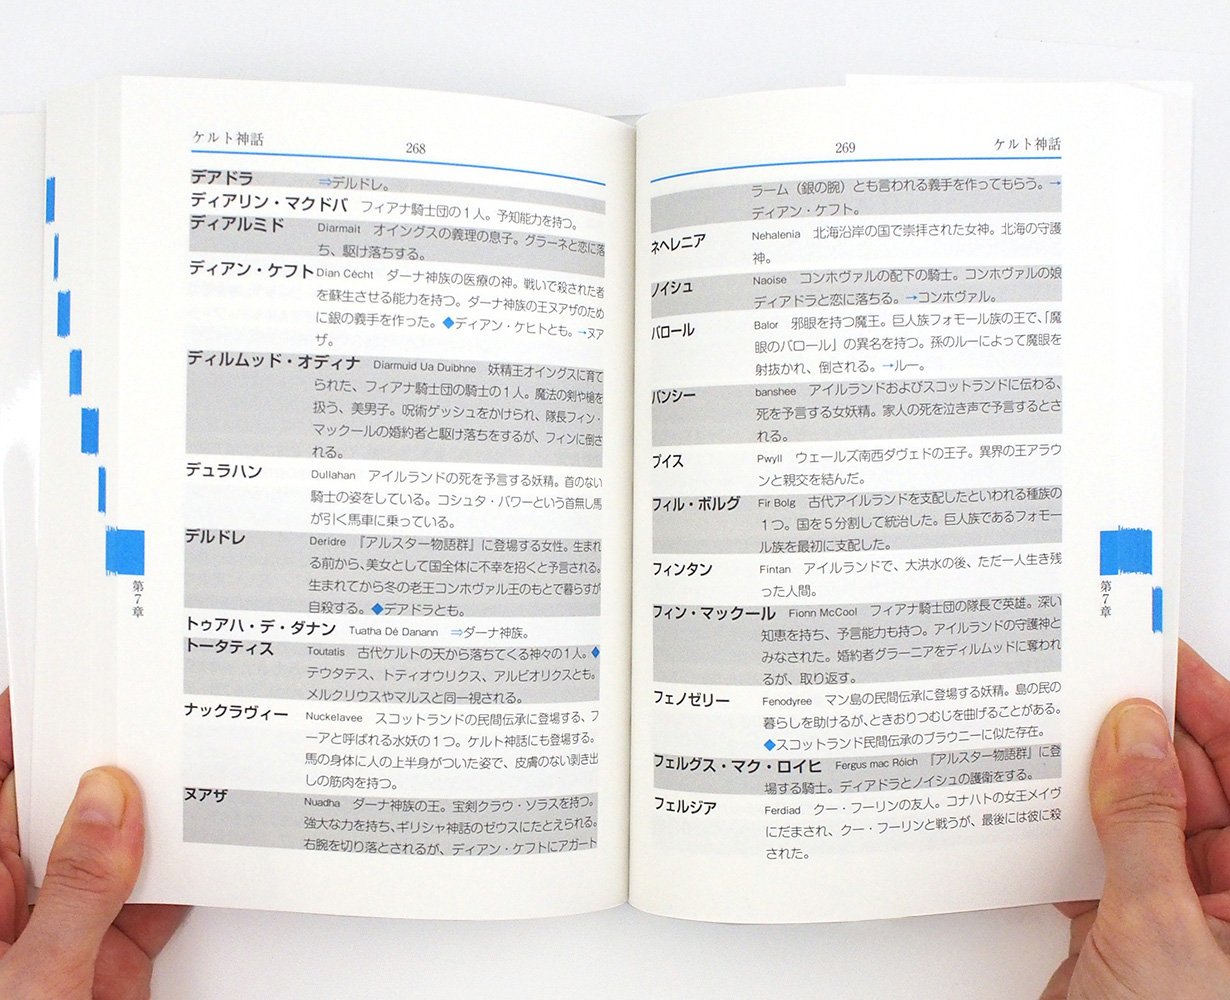 ケルト神話
268
デアドラ ⇒デルドレ。
ディアリン・マクドバ フィアナ騎士団の1人。予知能力を持つ。
ディアルミド Diarmait オイングスの義理の息子。グラーネと恋に落
ち、駆け落ちする。
ディアン・ケフト Dian Cécht ダーナ神族の医療の神。戦いで殺された者
を蘇生させる能力を持つ。ダーナ神族の王ヌアザのため
に銀の義手を作った。◆ディアン・ケヒトとも。→ヌア
ザ。
ディルムッド・オディナ Diarmuid Ua Duibhne 妖精王オイングスに育て
られた、フィアナ騎士団の騎士の1人。魔法の剣や槍を
扱う、美男子。呪術ゲッシュをかけられ、隊長フィン・
マックールの婚約者と駆け落ちをするが、フィンに倒さ
れる。
デュラハン Dullahan アイルランドの死を予言する妖精。首のない
騎士の姿をしている。コシュタ・バワーという首無し馬
が引く馬車に乗っている。
デルドレ Deridre 『アルスター物語群』に登場する女性。生まれ
る前から、美女として国全体に不幸を招くと予言される。
生まれてから冬の老王コンホヴァル王のもとで暮らすが
自殺する。◆デアドラとも。
トゥアハ・デ・ダナン Tuatha Dé Danann ⇒ダーナ神族。
トータティス Toutatis 古代ケルトの天から落ちてくる神々の1人。◆
テウタテス、トティオウリクス、アルビオリクスとも。
メルクリウスやマルスと同一視される。
ナックラヴィー Nuckelavee スコットランドの民間伝承に登場する、フ
ーアと呼ばれる水妖の1つ。ケルト神話にも登場する。
馬の身体に人の上半身がついた姿で、皮膚のない剥き出
しの筋肉を持つ。
ヌアザ Nuadha ダーナ神族の王。宝剣クラウ・ソラスを持つ。
強大な力を持ち、ギリシャ神話のゼウスにたとえられる。
右腕を切り落とされるが、ディアン・ケフトにアガート
第7章
269
ケルト神話
ラーム（銀の腕）とも言われる義手を作ってもらう。→
ディアン・ケフト。
ネヘレニア Nehalenia 北海沿岸の国で崇拝された女神。北海の守護
神。
ノイシュ Naoise コンホヴァルの配下の騎士。コンホヴァルの娘
ディアドラと恋に落ちる。→コンホヴァル。
バロール Balor 邪眼を持つ魔王。巨人族フォモール族の王で、「魔
眼のバロール」の異名を持つ。孫のルーによって魔眼を
射抜かれ、倒される。→ルー。
バンシー banshee アイルランドおよびスコットランドに伝わる、
死を予言する女妖精。家人の死を泣き声で予言するとさ
れる。
プイス Pwyll ウェールズ南西ダヴェドの王子。異界の王アラウ
ンと親交を結んだ。
フィル・ボルグ Fir Bolg 古代アイルランドを支配したといわれる種族の
1つ。国を5分割して統治した。巨人族であるフォモー
ル族を最初に支配した。
フィンタン Fintan アイルランドで、大洪水の後、ただ一人生き残
った人間。
フィン・マックール Fionn McCool フィアナ騎士団の隊長で英雄。深い
知恵を持ち、予言能力も持つ。アイルランドの守護神と
みなされた。婚約者グラーニアをディルムッドに奪われ
るが、取り返す。
フェノゼリー Fenodyree マン島の民間伝承に登場する妖精。島の民の
暮らしを助けるが、ときおりつむじを曲げることがある。
◆スコットランド民間伝承のブラウニーに似た存在。
フェルグス・マク・ロイヒ Fergus mac Róich 『アルスター物語群』に登
場する騎士。ディアドラとノイシュの護衛をする。
フェルジア Ferdiad クー・フーリンの友人。コナハトの女王メイヴ
にだまされ、クー・フーリンと戦うが、最後には彼に殺
された。
第7章